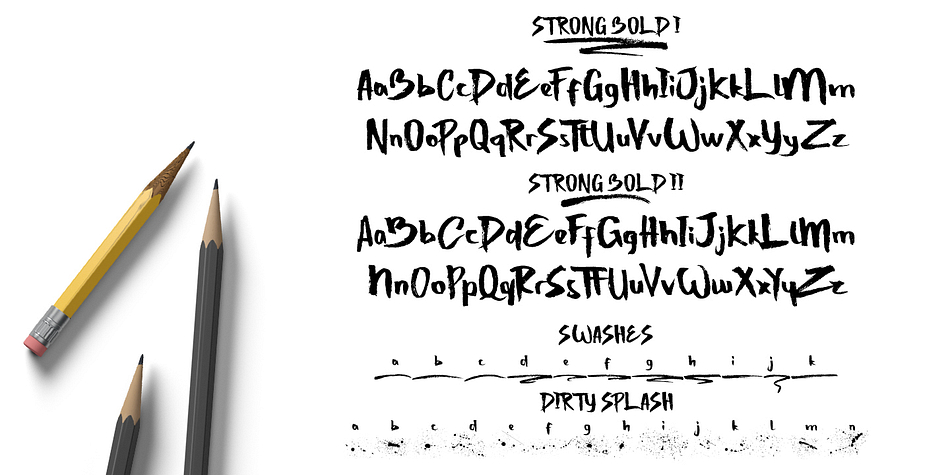 STRONG BOLD I
AaBbCcDdEeFfGgHhIiJjKkLlMm
NnOoPpQqRrSsTtUuVvWwXxYyZz
STRONG BOLD II
AaBbCcDdEeFfGgHhIiJjKkLlMm
NnOoPpQqRrSsTtUuVvWwXxYyZz
SWASHES
a b c d e f g h i j k
DIRTY SPLASH
a b c d e f g h i j k l m n